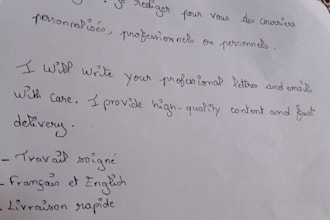 je rédiger pour vous des courriers
personnalisés, professionnels ou personnels.
I will write your professional lettres and emails
with care. I provide high-quality content and fast
delivery.
- Travail soigné
- Français et English
- Livraison rapide